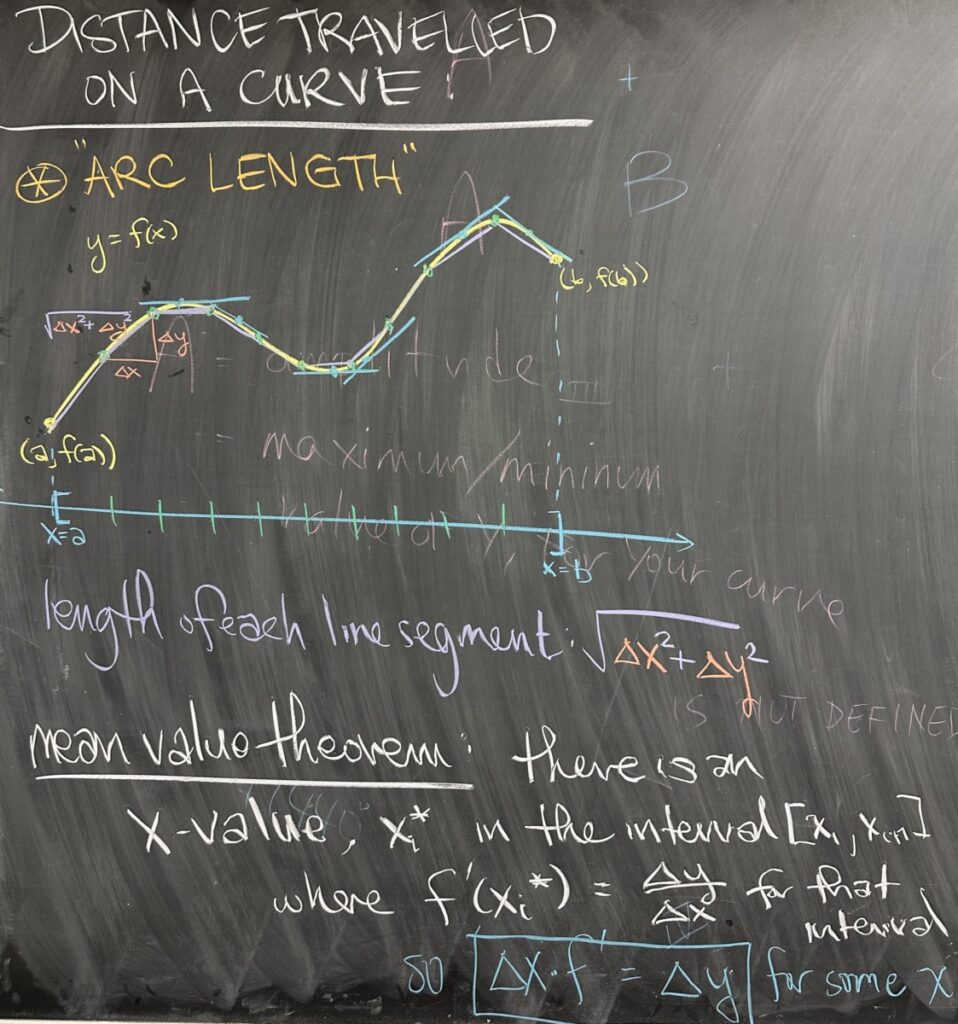 DISTANCE TRAVELLED
ON A CURVE:
"ARC LENGTH"
y = f(x)
(b, f(b))
√Δx²+Δy²
Δy
Δx
(a, f(a))
x=a
x=b
A
A
B
A = amplitude
= maximum/mininum
value of y, for your curve
length of each line segment: √Δx²+Δy²
IS NOT DEFINED
mean value theorem: there is an
x-value, xᵢ* in the interval [xᵢ, xᵢ₊₁]
where f'(xᵢ*) = Δy/Δx for that
interval
so Δx·f' = Δy for some x